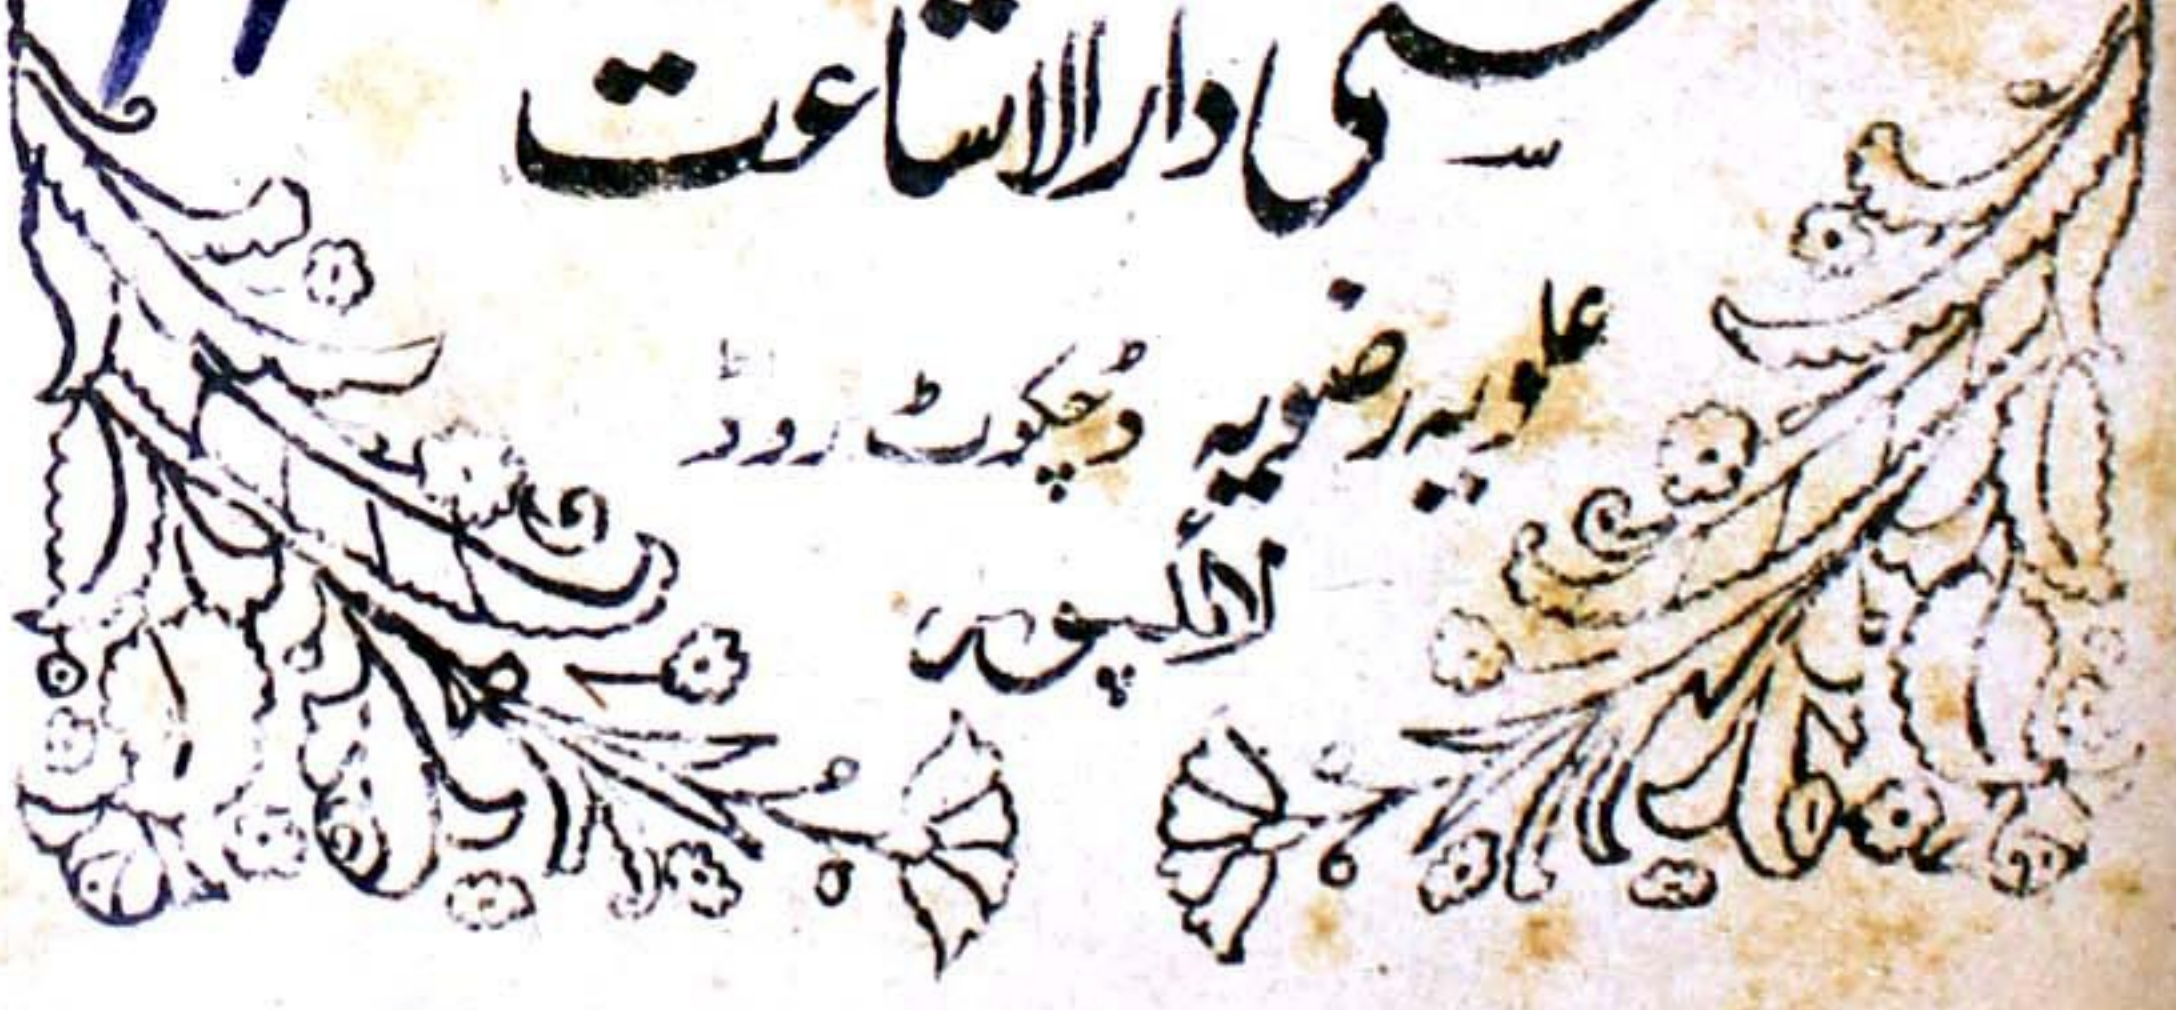 سنی دارالاشاعت
علویہ رضویہ ڈچکوٹ روڈ
لائلپور